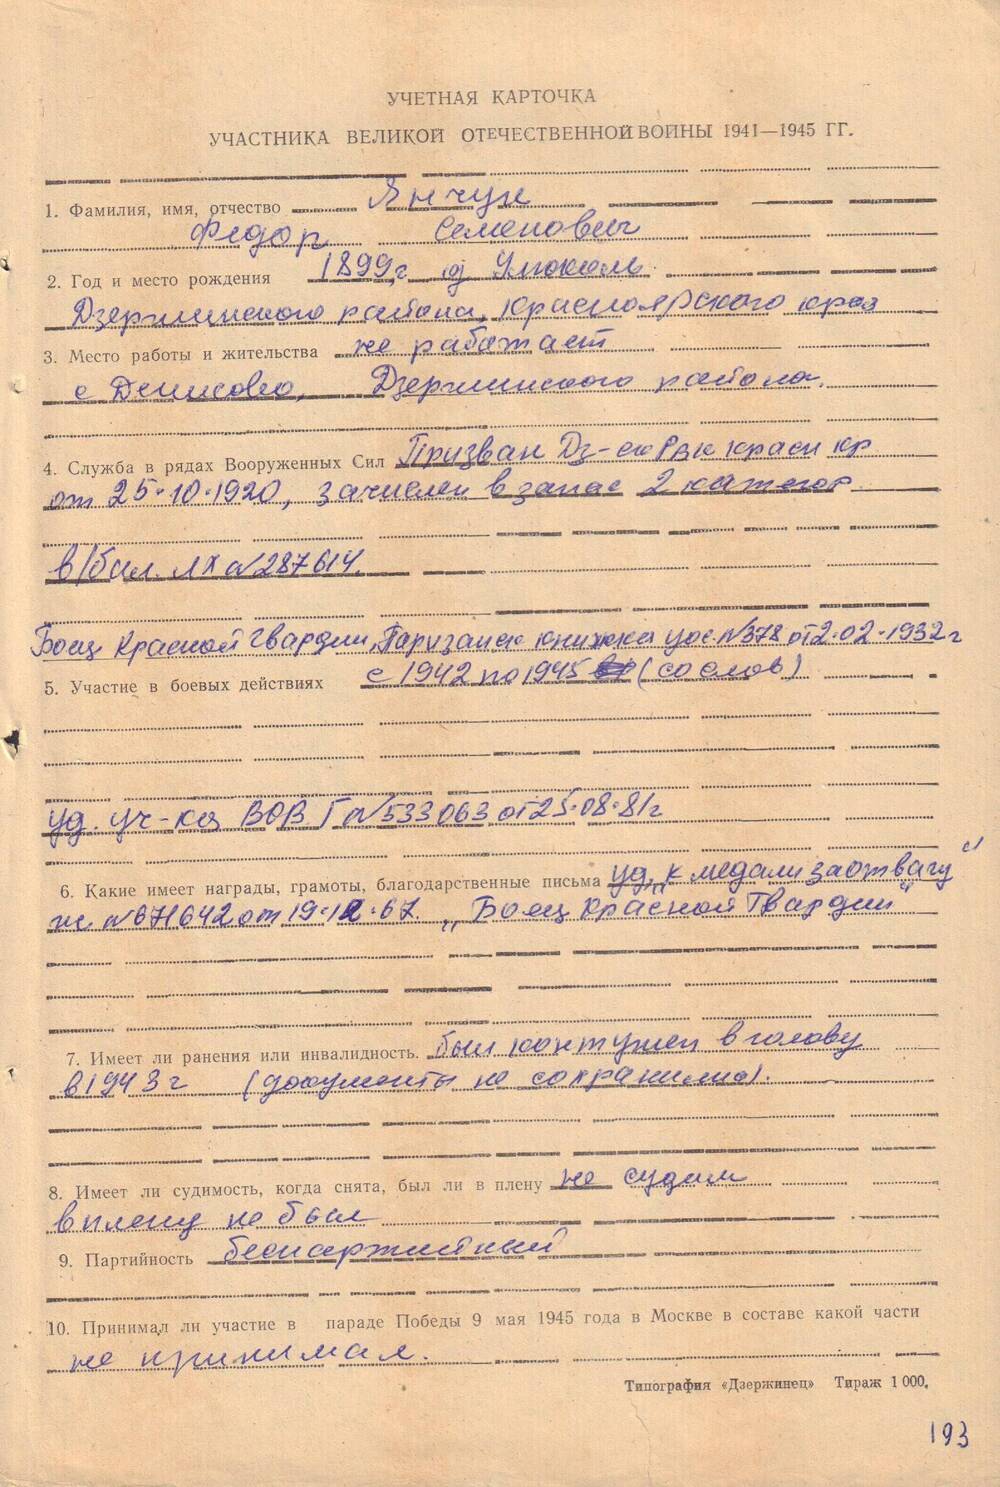 УЧЕТНАЯ КАРТОЧКА
УЧАСТНИКА ВЕЛИКОЙ ОТЕЧЕСТВЕННОЙ ВОЙНЫ 1941—1945 ГГ.
1. Фамилия, имя, отчество Янчук
Федор Семенович
2. Год и место рождения 1899г. д Умыколь
Дзержинского района, Красноярского края
3. Место работы и жительства не работает
с Денисово, Дзержинского района.
4. Служба в рядах Вооруженных Сил Призван Дз-ск РВК красн кр
от 25.10.1920, зачислен в запас 2 категор
в/бил. ЛХ №287614.
Боец Красной Гвардии, книжка №378 от 2.02.1932г
5. Участие в боевых действиях с 1942 по 1945 (со слов)
уд. уч-ка ВОВ Г №533063 от 25.08.81г
6. Какие имеет награды, грамоты, благодарственные письма уд. к медали „за отвагу“
№671642 от 19.12.67. „Боец Красной Гвардии“
7. Имеет ли ранения или инвалидность. был контужен в голову
в 1943г (документы не сохранились).
8. Имеет ли судимость, когда снята, был ли в плену не судим
в плену не был
9. Партийность беспартийный
10. Принимал ли участие в параде Победы 9 мая 1945 года в Москве в составе какой части
не принимал.
Типография «Дзержинец» Тираж 1 000.
193